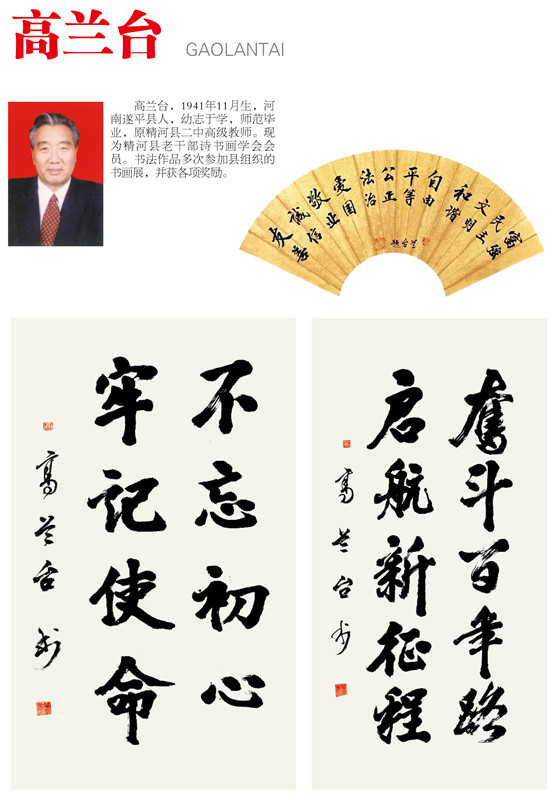 高兰台
GAOLANTAI
高兰台，1941年11月生，河
南遂平县人，幼志于学，师范毕
业，原精河县二中高级教师。现
为精河县老干部诗书画学会会
员。书法作品多次参加县组织的
书画展，并获各项奖励。
富强
民主
文明
和谐
自由
平等
公正
法治
爱国
敬业
诚信
友善
兰台题
不忘初心
牢记使命
高兰台书
奋斗百年路
启航新征程
高兰台书